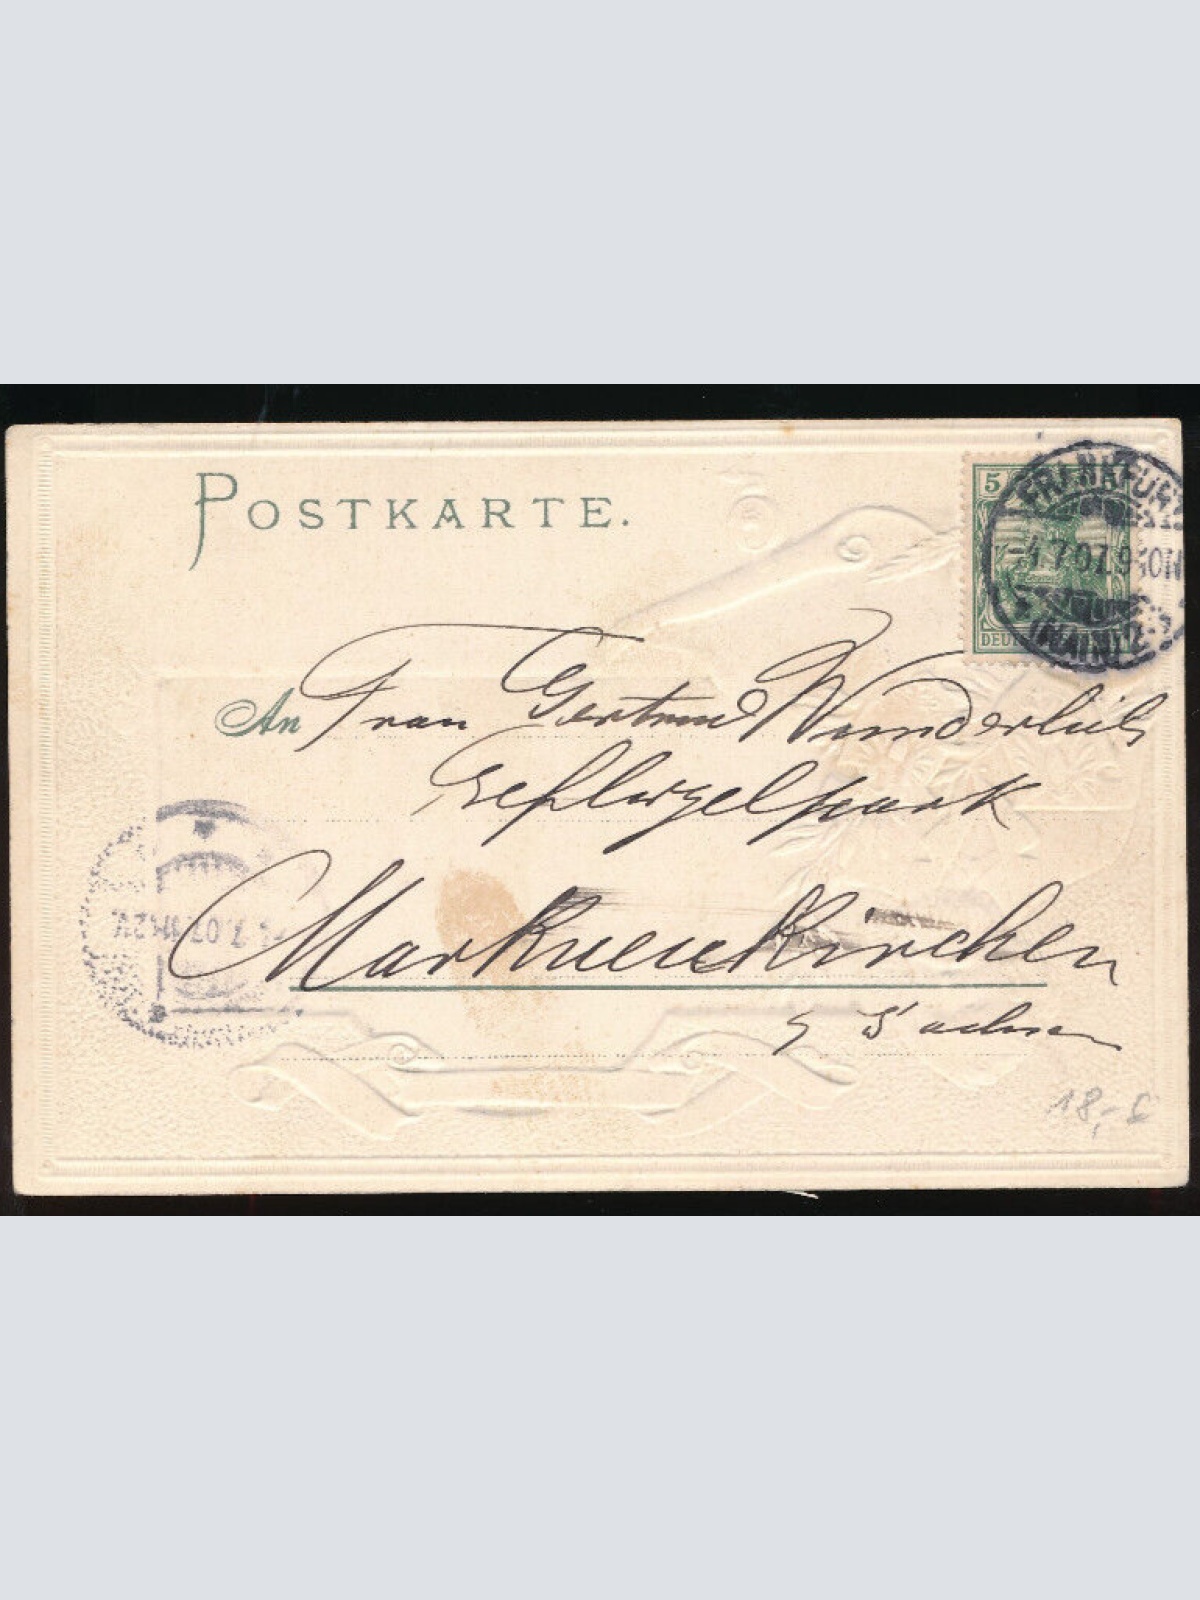 POSTKARTE.
5
FRANKFURT
-4.7.07.9-10N
(MAIN) 2
DEU
An Frau Gertrud Wunderlich
Geflügelpark
Markneukirchen
Sachsen
7.07
18,- €